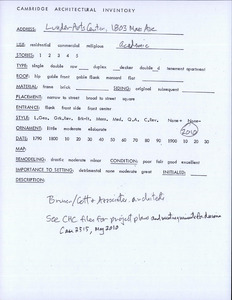 CAMBRIDGE ARCHITECTURAL INVENTORY
ADDRESS: Lunder Arts Center, 1803 Mass Ave
USE: residential commercial religious academic
STORIES: 1 2 3 4 5
TYPE: single double row duplex decker double d tenement apartment
ROOF: hip gable front gable flank mansard flat
MATERIAL: frame brick SIDING: original subsequent
PLACEMENT: narrow to street broad to street square
ENTRANCE: flank front side front center
STYLE: Fed, Gk, Rev, Ital, Mans, Med, Q.A., C.Rev, None
ORNAMENTATION: little moderate elaborate 2010
DATE: 1790 1800 10 20 30 40 50 60 70 80 90 1900 10 20 30
MAP:
REMODELING: drastic moderate minor CONDITION: poor fair good excellent
IMPORTANCE TO SETTING: detrimental none moderate great INITIALED:
DESCRIPTION:
Bruner/Cott & Associates architects
See CHC files for project plans and
Case 2515, May 2010